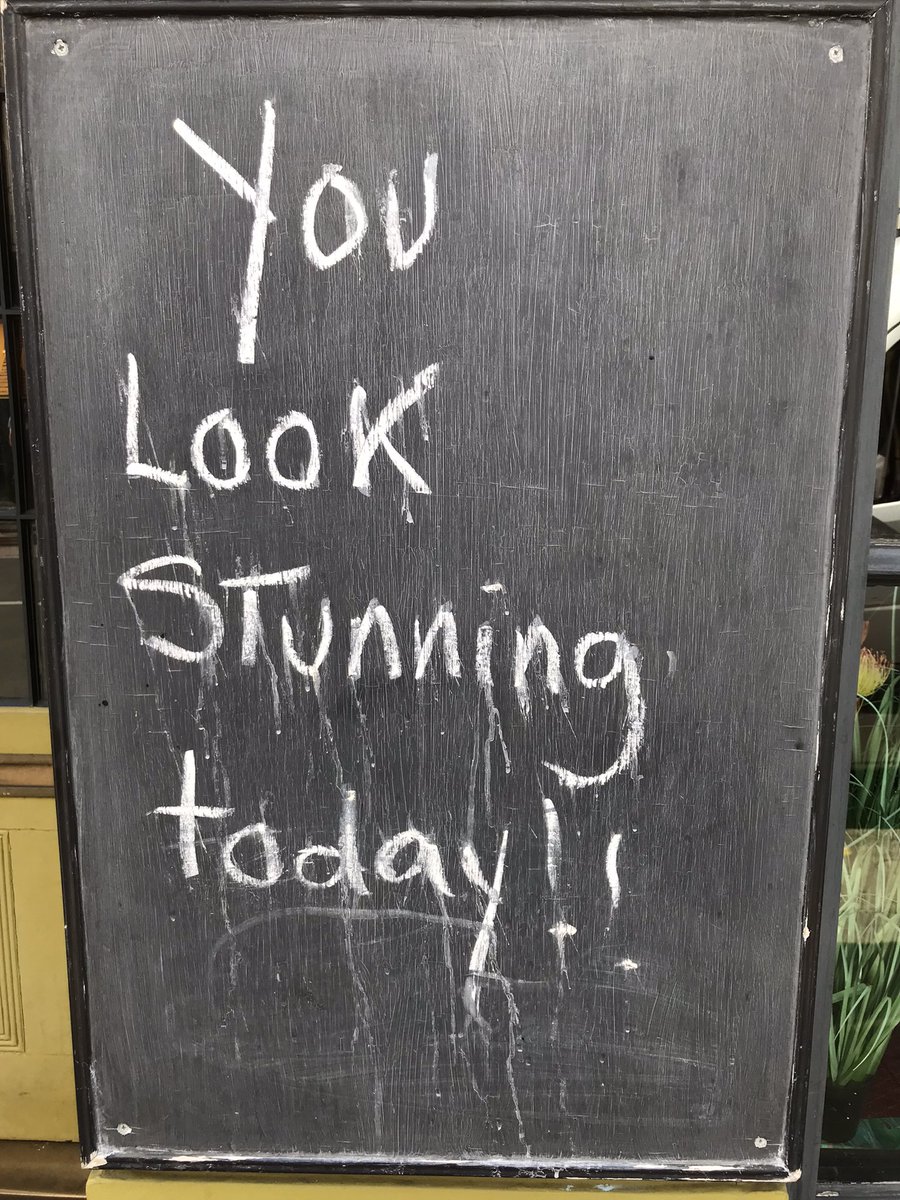 You
Look
Stunning
today!!